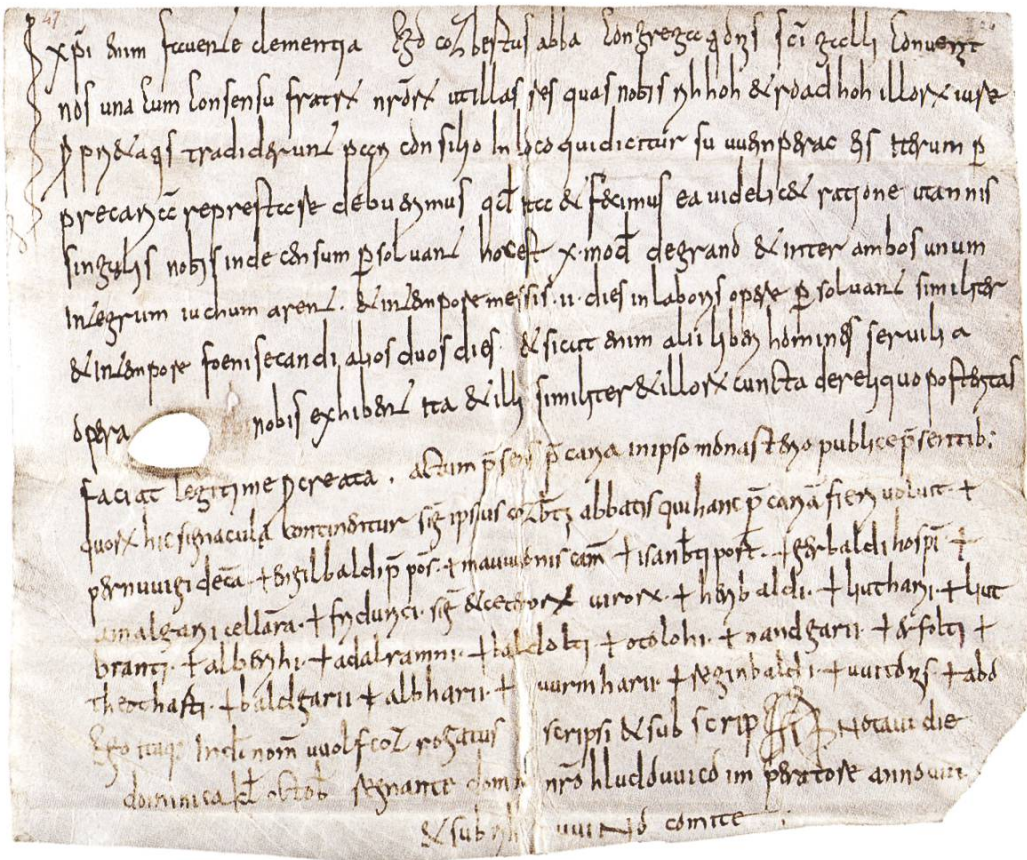 47
xp̄i enim fauente clementia Ego cozbertus abba congregationis sc̄i galli conuenit
nos una cum consensu fratrꝝ nr̄orꝝ ut illas res quas nobis hihhoh & roadhoh illorꝝ iure
ꝓpri&atis tradiderunt pari consilio In loco qui dicitur suuuenperac eis iterum ꝑ
precariā represtare deberemus qd̄ ita & fecimus ea uidelic& ratione ut annis
singulis nobis inde censum ꝑsoluant hoc est x mod̄ de grano & inter ambos unum
Integrum iuchum arent. & in tempore messis .ii. dies in laboris opere ꝑsoluant similiter
& In tempore foeni secandi alios duos dies & sicut enim alii liberi homines seruilia
opera nobis exhibent ita & illi similiter & illorꝝ cuncta dereliquo posteritas
faciat legitime ꝓcreata. actum p̄sens p̄caria in ipso monasterio publice p̄sentib;
quorꝝ hic signacula continentur sig̅ ipsius cozb̄ti abbatis qui hanc p̄cariā fieri uoluit +
pernuuigi decā + engilbaldi p̄pos̄ + mauuonis cam̄ + isanb̄ti port̄ + gerbaldi hosp̄i +
amalgarii cellāra + fridurici sig̅ & ceterorꝝ uirorꝝ + heribaldi + liutharii + liut
branti + alberihi + adalramni + baldolti + otolohi + nandgarii + erfolti +
theothafti + baldgarii + albharii + uurmharii + reginbaldi + uuitonis + abo
Ego itaq; Indi nom̄ uuolfcoz rogatus scripsi & subscrip Notaui die
dominica kl̄ octob̄ regnante domn nr̄o hludouuico imperatore anno uiii
& sub rih uuino comite